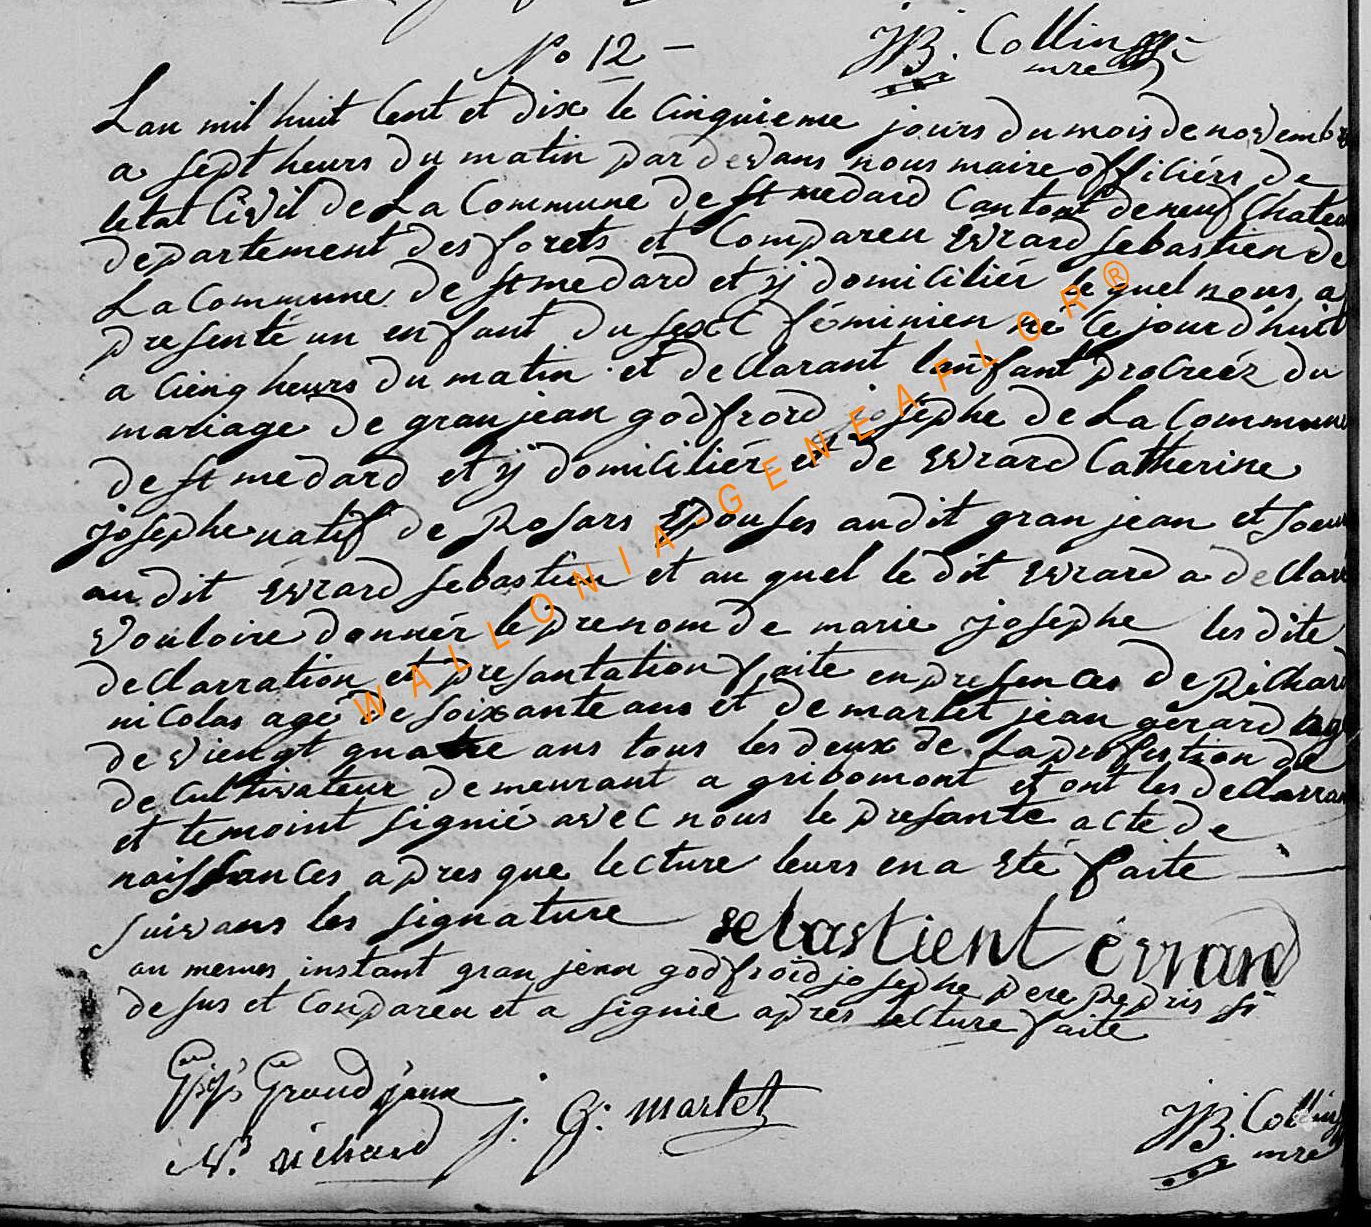 No 12 — JB. Collin
mre
Lan mil huit Cent et dix le Cinquieme jours du mois de novembre
a sept heurs du matin par devans nous maire officiérs de
letat Civil de La Commune de st medard Canton de neuf Chateau
departement des forets et Compareu Evrard sebastien de
La Commune de st medard et ÿ domiciliér le quel nous a
presenté un enfant du sexe féminien né Ce jourd'huit
a Cienq heurs du matin et declarant lenfant procreéz du
mariage de gran jean godfroid josephe de La Commune
de st medard et ÿ domiciliér et de Evrard Catherine
josephe natif de Rosars Epouses audit gran jean et soeur
au dit Evrard sebastien et au quel le dit Evrard a declare
Vouloire donnér le prenom de marie josephe les dite
declarration et presantation faite en presences de Richard
nicolas age de soixante ans et de marlet jean gérard age
de viengt quatre ans tous les deux de La profession de
de Cultivateur demeurant a gribomont et ont les declarran
et temoint signié avec nous le presante acte de
naissances apres que lecture leurs en a Eté faite
suivans les signature sebastient évrard
au memes instant gran jean godfroid josephe pere repris si
desus et Conpareu et a signié aprés lecture faite
Grand jean j: G: marlet JB. Collin
N. richard mre
WALLONIA-GENEAFLOR®